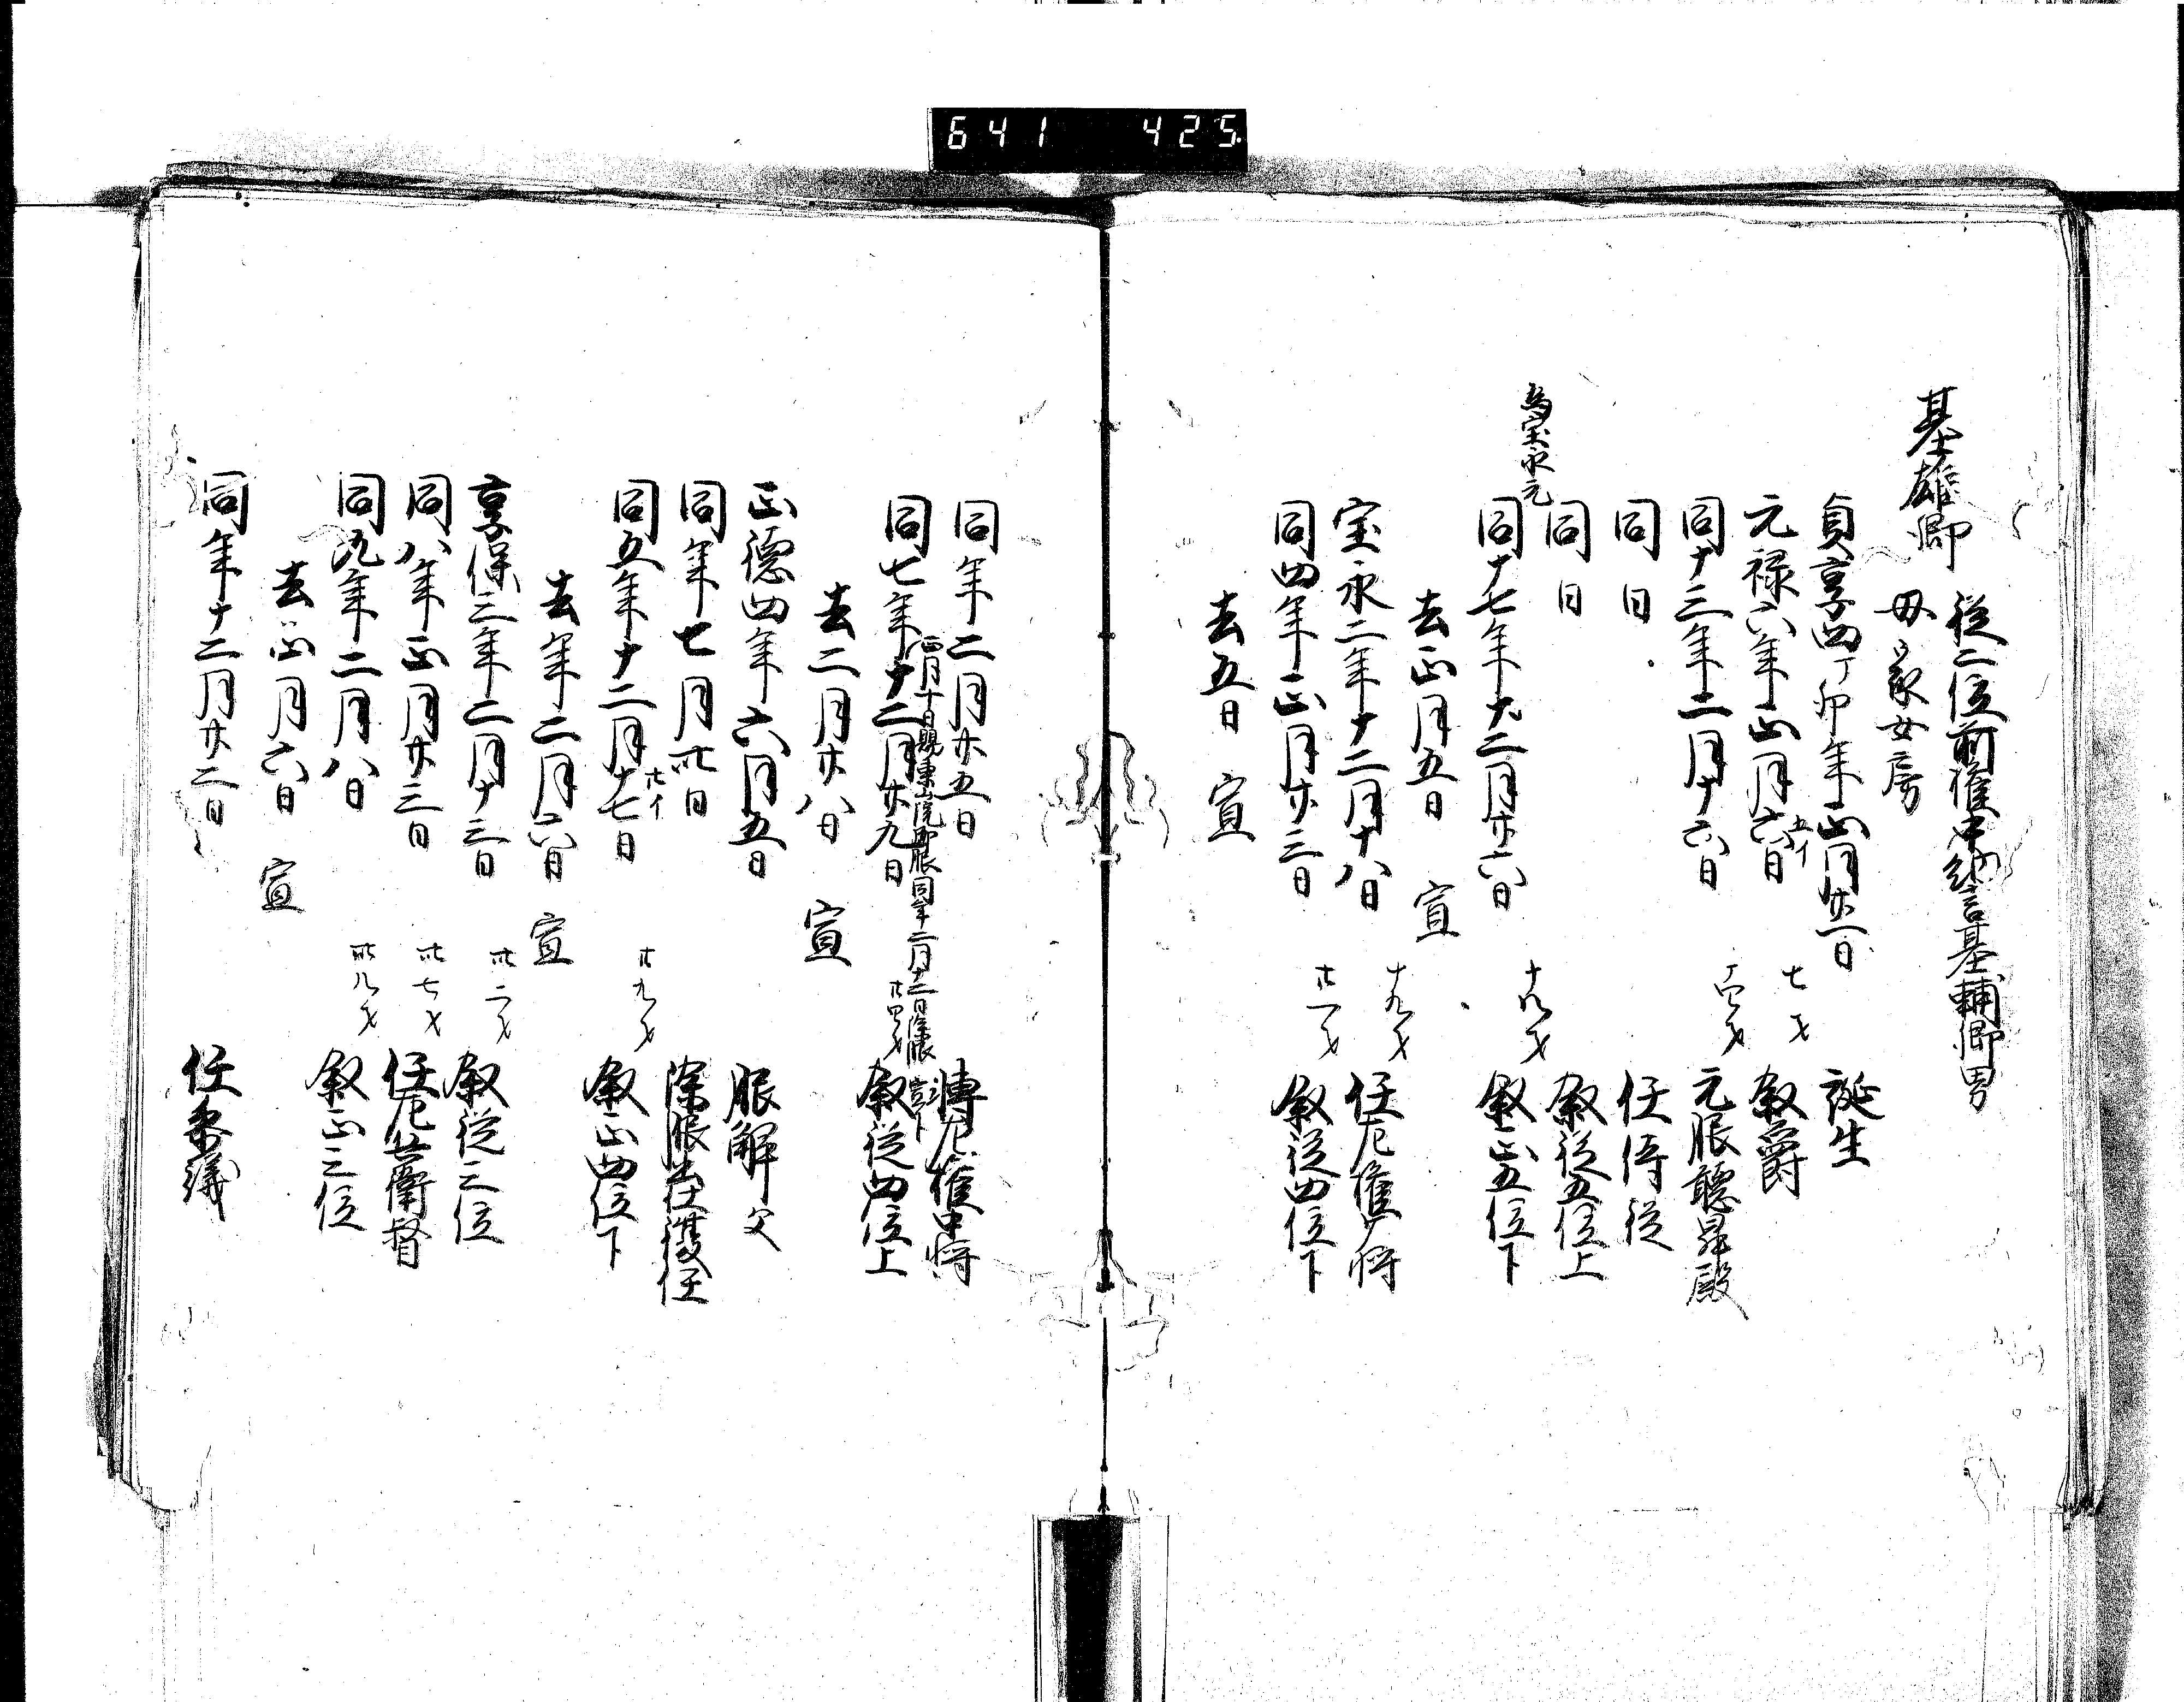 641 425
基雄卿
従二位前権中納言基輔卿男
母家女房
貞享四丁卯年正月廿二日 誕生
元禄六年正月六日 五イ 七才 叙爵
同十三年二月十六日 十四才 元服聴昇殿
同日 任侍従
同日 叙従五位上
為宝永元
同十七年十二月廿六日 十八才 叙正五位下
去正月五日 宣
宝永二年十二月十八日 十九才 任左権少将
同四年正月廿三日 廿一才 叙従四位下
去五日 宣
同年二月廿五日 転左権中将
正月十日親東山院御服同年二月十二日除服宣下
同七年十二月廿九日 廿四才 叙従四位上
去二月廿八日 宣
正徳四年六月五日 服解 父
同年七月卅日 除服出仕復任
同五年十二月十七日 廿イ 廿九才 叙正四位下
去年二月六日 宣
享保三年二月十三日 卅二才 叙従三位
同八年正月廿三日 卅七才 任左兵衛督
同九年二月八日 卅八才 叙正三位
去正月六日 宣
同年十二月廿二日 任参議